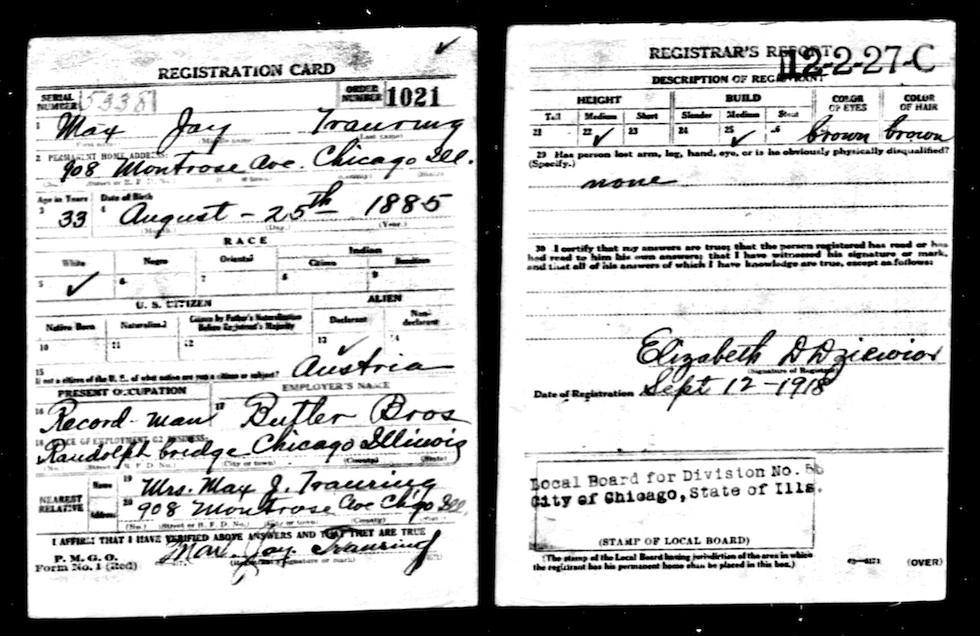 REGISTRATION CARD
SERIAL NUMBER 5338 ORDER NUMBER 1021
1 Max Jay Trauring
(Middle name) (Last name)
2 PERMANENT HOME ADDRESS:
908 Montrose Ave. Chicago Ill.
Age in Years Date of Birth
3 33 4 August - 25th 1885
(Month) (Day) (Year)
RACE
White Negro Oriental Indian
Citizen Noncitizen
5 ✓ 6 7 8 9
U. S. CITIZEN ALIEN
Native Born Naturalized Citizen by Father's Naturalization Before Registrant's Majority Declarant Non-declarant
10 11 12 13 ✓ 14
15 Austria
If not a citizen of the U. S., of what nation are you a citizen or subject?
PRESENT OCCUPATION EMPLOYER'S NAME
16 Record-man 17 Butler Bros
18 PLACE OF EMPLOYMENT OR BUSINESS:
Randolph bridge Chicago Illinois
(No.) (Street or R. F. D. No.) (City or town) (County) (State)
NEAREST RELATIVE Name 19 Mrs. Max J. Trauring
Address 20 908 Montrose Ave Chgo Ill.
(No.) (Street or R. F. D. No.) (City or town) (County) (State)
I AFFIRM THAT I HAVE VERIFIED ABOVE ANSWERS AND THAT THEY ARE TRUE
P. M. G. O.
Form No. 1 (Red) Max Jay Trauring
(Registrant's signature or mark)
REGISTRAR'S REPORT
12-2-27-C
DESCRIPTION OF REGISTRANT
HEIGHT BUILD COLOR OF EYES COLOR OF HAIR
Tall Medium Short Slender Medium Stout
21 22 ✓ 23 24 25 ✓ 26 brown brown
29 Has person lost arm, leg, hand, eye, or is he obviously physically disqualified?
(Specify.)
none
30 I certify that my answers are true; that the person registered has read or has
had read to him his own answers; that I have witnessed his signature or mark,
and that all of his answers of which I have knowledge are true, except as follows:
Elizabeth
(Signature of Registrar)
Date of Registration Sept 12 - 1918
Local Board for Division No.
City of Chicago, State of Ills.
(STAMP OF LOCAL BOARD)
(The stamp of the Local Board having jurisdiction of the area in which
the registrant has his permanent home shall be placed in this box.)
(OVER)